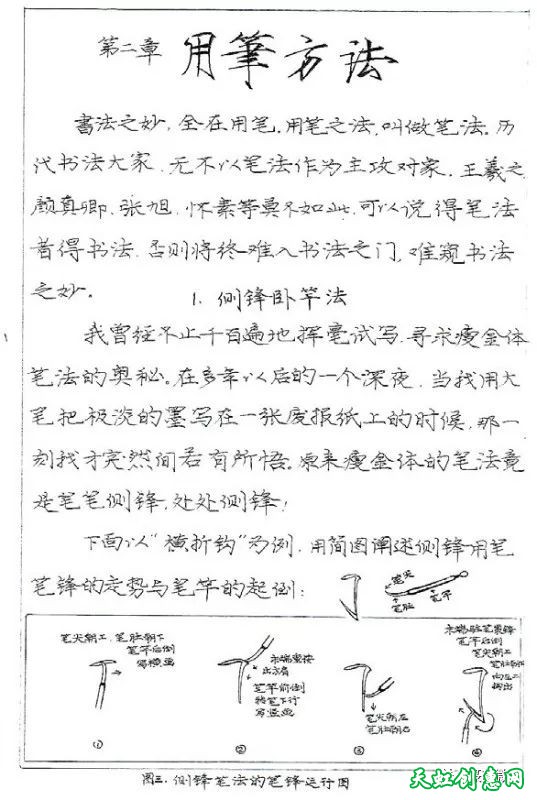 第二章 用筆方法
書法之妙，全在用笔。用笔之法，叫做笔法。历
代书法大家，无不以笔法作为主攻对家，王羲之，
颜真卿、张旭、怀素等莫不如此，可以说得笔法
者得书法，否则将终难入书法之门，难窥书法
之妙。
1. 侧锋卧竿法
我曾经不止千百遍地挥毫试写，寻求瘦金体
笔法的奥秘。在多年以后的一个深夜，当我用大
笔把极淡的墨写在一张废报纸上的时候，那一
刻我才突然间若有所悟。原来瘦金体的笔法竟
是笔笔侧锋，处处侧锋！
下面以“横折钩”为例，用简图阐述侧锋用笔
笔锋的走势与笔竿的起倒：
笔尖
笔肚
笔竿
笔尖朝上，笔肚朝下
笔竿后倒
写横画
①
末端重按
出方肩
笔竿前倒
转笔下行
写竖画
②
笔尖朝左
笔肚朝右
③
笔竿后倒
笔尖朝上
向左上
④
图三. 侧锋笔法的笔锋运行图
天虹创意网